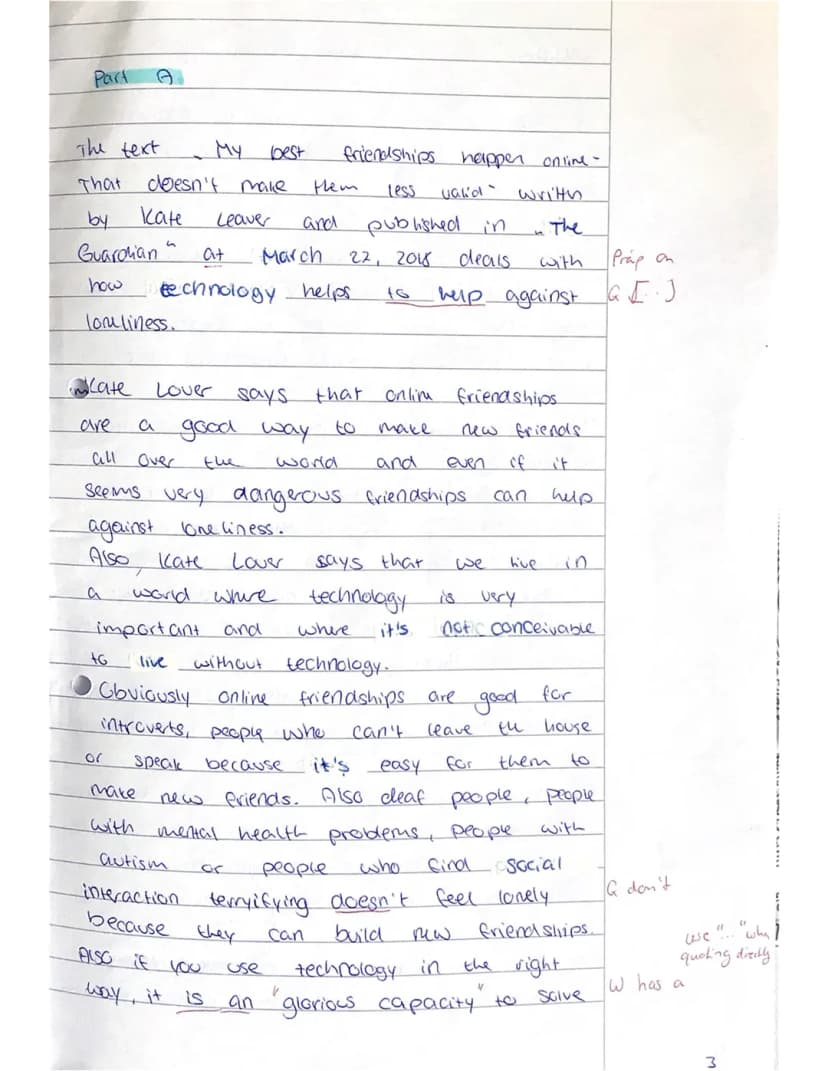 Part A
The text „ My best friendships happen online -
That doesn't make them less valid" written
by Kate Leaver and published in „ The
Guardian" at March 22, 2018 deals with Präp on
how technology helps to help against G [...]
loneliness.
Kate Lover says that online friendships
are a good way to make new friends
all over the world and even if it
seems very dangerous friendships can help
against loneliness.
Also, Kate Lover says that we live in
a world where technology is very
important and where it's not conceivable
to live without technology.
Obviously online friendships are good for
introverts, people who can't leave the house
or speak because it's easy for them to
make new friends. Also deaf people, people
with mental health problems, people with
autism or people who find social
interaction terryifying doesn't feel lonely G don't
because they can build new friendships.
Also if you use technology in the right use "..." when quoting directly
way, it is an "glorious capacity" to solve W has a
3